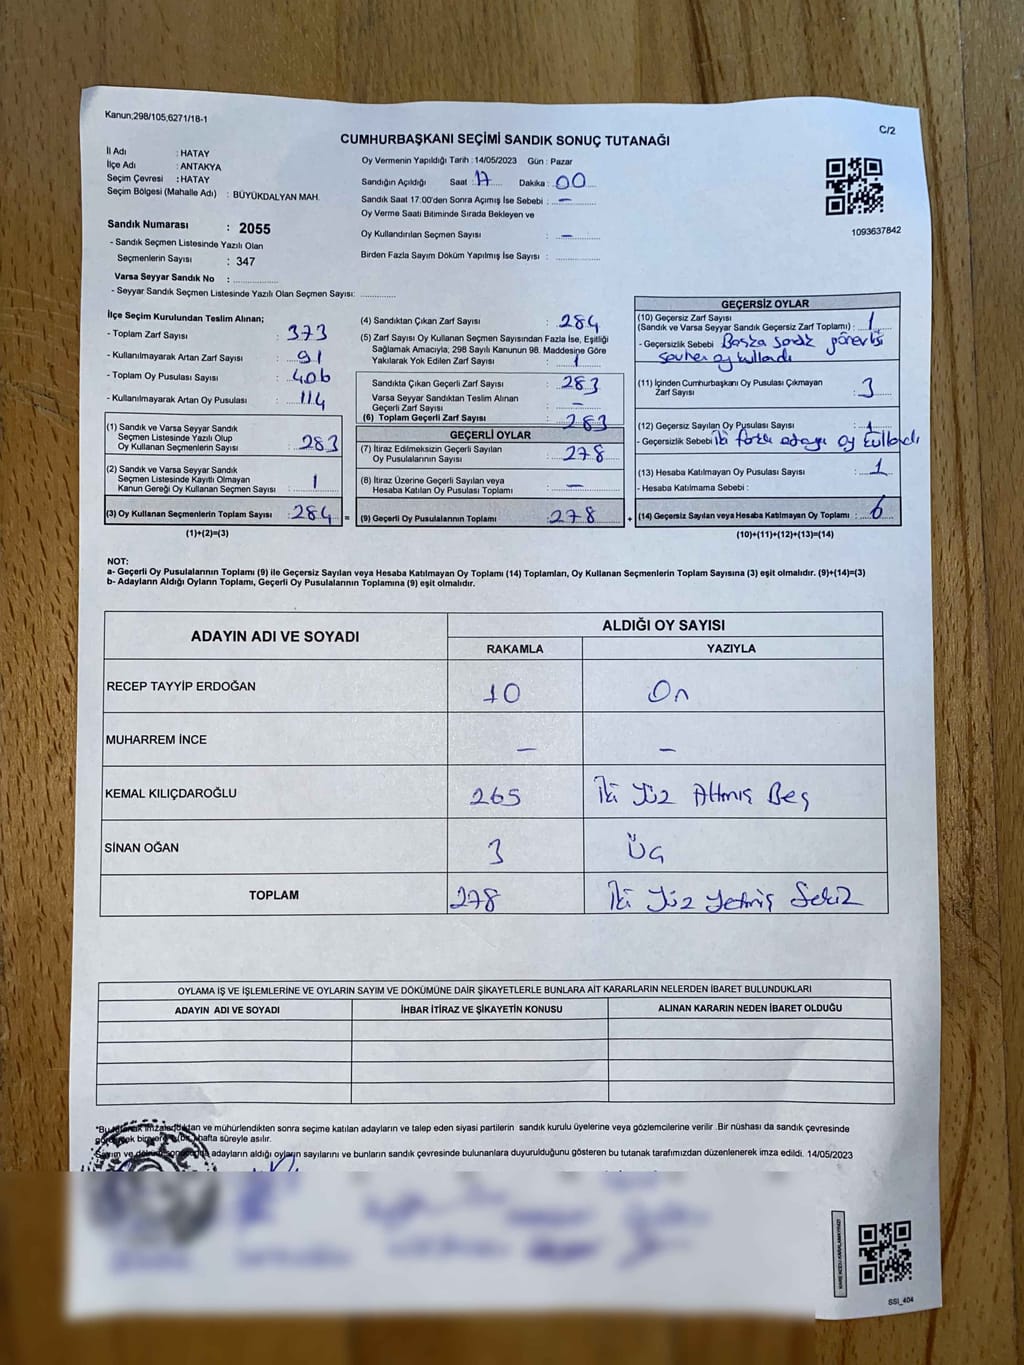 Kanun;298/105,6271/18-1
C/2
CUMHURBAŞKANI SEÇİMİ SANDIK SONUÇ TUTANAĞI
İl Adı : HATAY
İlçe Adı : ANTAKYA
Seçim Çevresi : HATAY
Seçim Bölgesi (Mahalle Adı) : BÜYÜKDALYAN MAH.
Sandık Numarası : 2055
- Sandık Seçmen Listesinde Yazılı Olan
Seçmenlerin Sayısı : 347
Varsa Seyyar Sandık No :
- Seyyar Sandık Seçmen Listesinde Yazılı Olan Seçmen Sayısı:
Oy Vermenin Yapıldığı Tarih : 14/05/2023 Gün : Pazar
Sandığın Açıldığı Saat : 17 Dakika : 00
Sandık Saat 17:00'den Sonra Açımış İse Sebebi : -
Oy Verme Saati Bitiminde Sırada Bekleyen ve
Oy Kullandırılan Seçmen Sayısı : -
Birden Fazla Sayım Döküm Yapılmış İse Sayısı :
1093637842
İlçe Seçim Kurulundan Teslim Alınan;
- Toplam Zarf Sayısı : 373
- Kullanılmayarak Artan Zarf Sayısı : 91
- Toplam Oy Pusulası Sayısı : 406
- Kullanılmayarak Artan Oy Pusulası : 114
(1) Sandık ve Varsa Seyyar Sandık
Seçmen Listesinde Yazılı Olup
Oy Kullanan Seçmenlerin Sayısı : 283
(2) Sandık ve Varsa Seyyar Sandık
Seçmen Listesinde Kayıtlı Olmayan
Kanun Gereği Oy Kullanan Seçmen Sayısı : 1
(3) Oy Kullanan Seçmenlerin Toplam Sayısı : 284 =
(1)+(2)=(3)
(4) Sandıktan Çıkan Zarf Sayısı : 284
(5) Zarf Sayısı Oy Kullanan Seçmen Sayısından Fazla İse, Eşitliği
Sağlamak Amacıyla, 298 Sayılı Kanunun 98. Maddesine Göre
Yakılarak Yok Edilen Zarf Sayısı : 1
Sandıkta Çıkan Geçerli Zarf Sayısı : 283
Varsa Seyyar Sandıktan Teslim Alınan
Geçerli Zarf Sayısı : -
(6) Toplam Geçerli Zarf Sayısı : 283
GEÇERLİ OYLAR
(7) İtiraz Edilmeksizin Geçerli Sayılan
Oy Pusulalarının Sayısı : 278
(8) İtiraz Üzerine Geçerli Sayılan veya
Hesaba Katılan Oy Pusulası Toplamı : -
(9) Geçerli Oy Pusulalarının Toplamı : 278 +
GEÇERSİZ OYLAR
(10) Geçersiz Zarf Sayısı
(Sandık ve Varsa Seyyar Sandık Geçersiz Zarf Toplamı) : 1
- Geçersizlik Sebebi Başka sandık görevlisi
oy kullandı
(11) İçinden Cumhurbaşkanı Oy Pusulası Çıkmayan
Zarf Sayısı : 3
(12) Geçersiz Sayılan Oy Pusulası Sayısı : 1
- Geçersizlik Sebebi iki fazla adaya oy kullandı
(13) Hesaba Katılmayan Oy Pusulası Sayısı : 1
- Hesaba Katılmama Sebebi :
(14) Geçersiz Sayılan veya Hesaba Katılmayan Oy Toplamı : 6
(10)+(11)+(12)+(13)=(14)
NOT:
a- Geçerli Oy Pusulalarının Toplamı (9) ile Geçersiz Sayılan veya Hesaba Katılmayan Oy Toplamı (14) Toplamları, Oy Kullanan Seçmenlerin Toplam Sayısına (3) eşit olmalıdır. (9)+(14)=(3)
b- Adayların Aldığı Oyların Toplamı, Geçerli Oy Pusulalarının Toplamına (9) eşit olmalıdır.
ADAYIN ADI VE SOYADI
ALDIĞI OY SAYISI
RAKAMLA YAZIYLA
RECEP TAYYİP ERDOĞAN 10 On
MUHARREM İNCE - -
KEMAL KILIÇDAROĞLU 265 İki Yüz Altmış Beş
SİNAN OĞAN 3 Üç
TOPLAM 278 İki Yüz Yetmiş Sekiz
OYLAMA İŞ VE İŞLEMLERİNE VE OYLARIN SAYIM VE DÖKÜMÜNE DAİR ŞİKAYETLERLE BUNLARA AİT KARARLARIN NELERDEN İBARET BULUNDUKLARI
ADAYIN ADI VE SOYADI İHBAR İTİRAZ VE ŞİKAYETİN KONUSU ALINAN KARARIN NEDEN İBARET OLDUĞU
imzalandıktan ve mühürlendikten sonra seçime katılan adayların ve talep eden siyasi partilerin sandık kurulu üyelerine veya gözlemcilerine verilir .Bir nüshası da sandık çevresinde
hafta süreyle asılır.
adayların aldığı oyların sayılarını ve bunların sandık çevresinde bulunanlara duyurulduğunu gösteren bu tutanak tarafımızdan düzenlenerek imza edildi. 14/05/2023
SSI_404